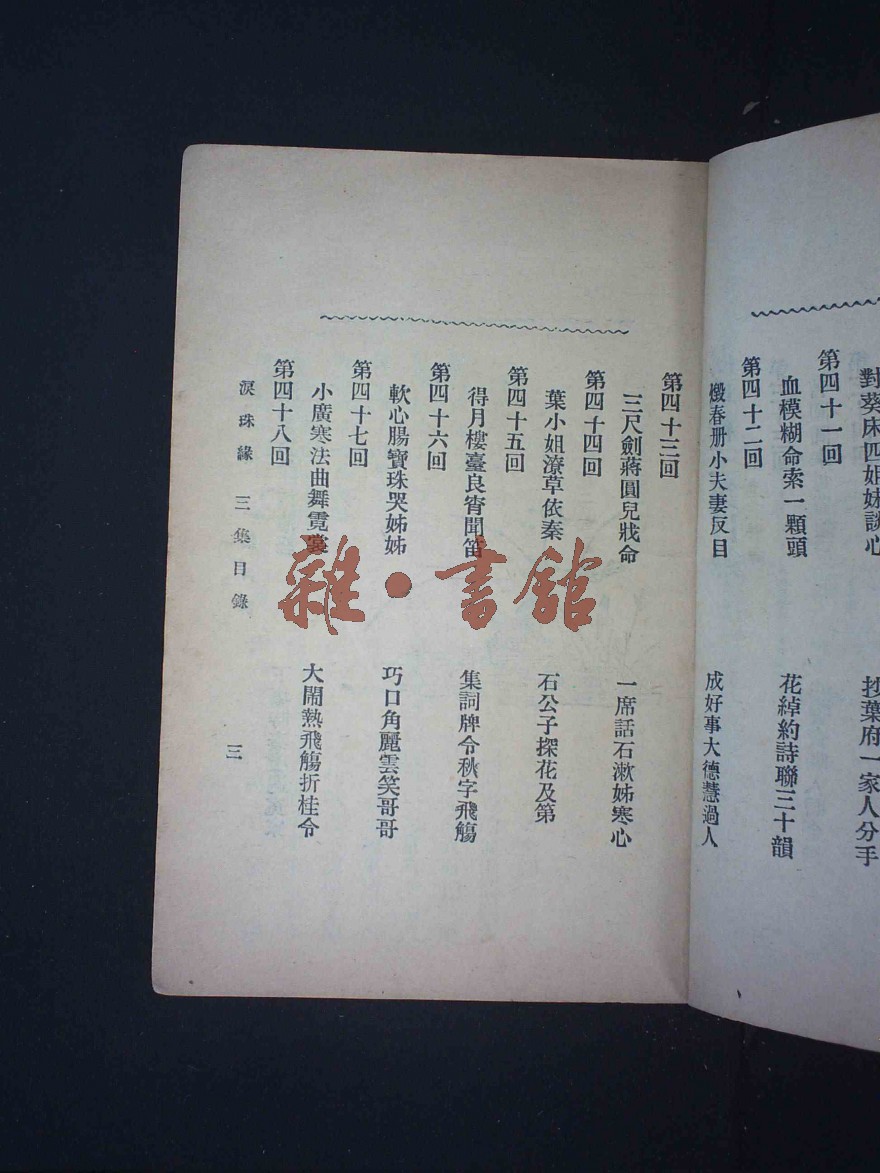 對葵床四姐妹談心　抄葉府一家人分手
第四十一回
血模糊命索一顆頭　花綽約詩聯三十韻
第四十二回
燬春册小夫妻反目　成好事大德慧過人
第四十三回
三尺劍蔣圓兒戕命　一席話石漱姊寒心
第四十四回
葉小姐潦草依秦　石公子探花及第
第四十五回
得月樓臺良宵聞笛　集詞牌令秋字飛觴
第四十六回
軟心腸寶珠哭姊姊　巧口角麗雲笑哥哥
第四十七回
小廣寒法曲舞霓裳　大鬧熱飛觴折桂令
第四十八回
淚珠緣　三集目錄　三
雜·書館